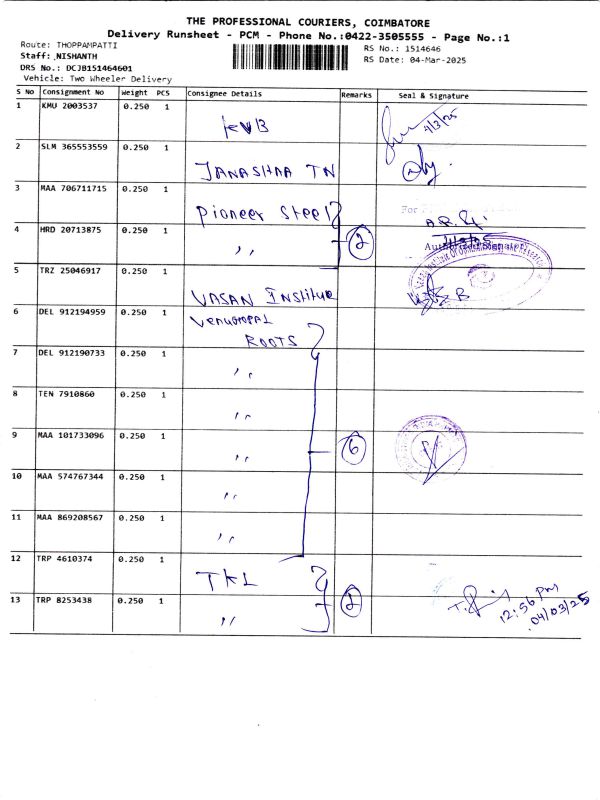 THE PROFESSIONAL COURIERS, COIMBATORE
Delivery Runsheet - PCM - Phone No.:0422-3505555 - Page No.:1
Route: THOPPAMPATTI
RS No.: 1514646
Staff: NISHANTH
RS Date: 04-Mar-2025
DRS No.: DCJB151464601
Vehicle: Two Wheeler Delivery
S No Consignment No Weight PCS Consignee Details Remarks Seal & Signature
1 KMU 2003537 0.250 1 KVB 4/3/25
2 SLM 365553559 0.250 1 JANASHAA TN
3 MAA 706711715 0.250 1 Pioneer Steel
For
4 HRD 20713875 0.250 1 ,, 2
5 TRZ 25046917 0.250 1 VASAN Institue
6 DEL 912194959 0.250 1 Venugopal
ROOTS
7 DEL 912190733 0.250 1 ,,
8 TEN 7910860 0.250 1 ,,
9 MAA 101733096 0.250 1 ,, 6
10 MAA 574767344 0.250 1 ,,
11 MAA 869208567 0.250 1 ,,
12 TRP 4610374 0.250 1 TKL
13 TRP 8253438 0.250 1 ,, 2
12:56 Pm
04/03/25